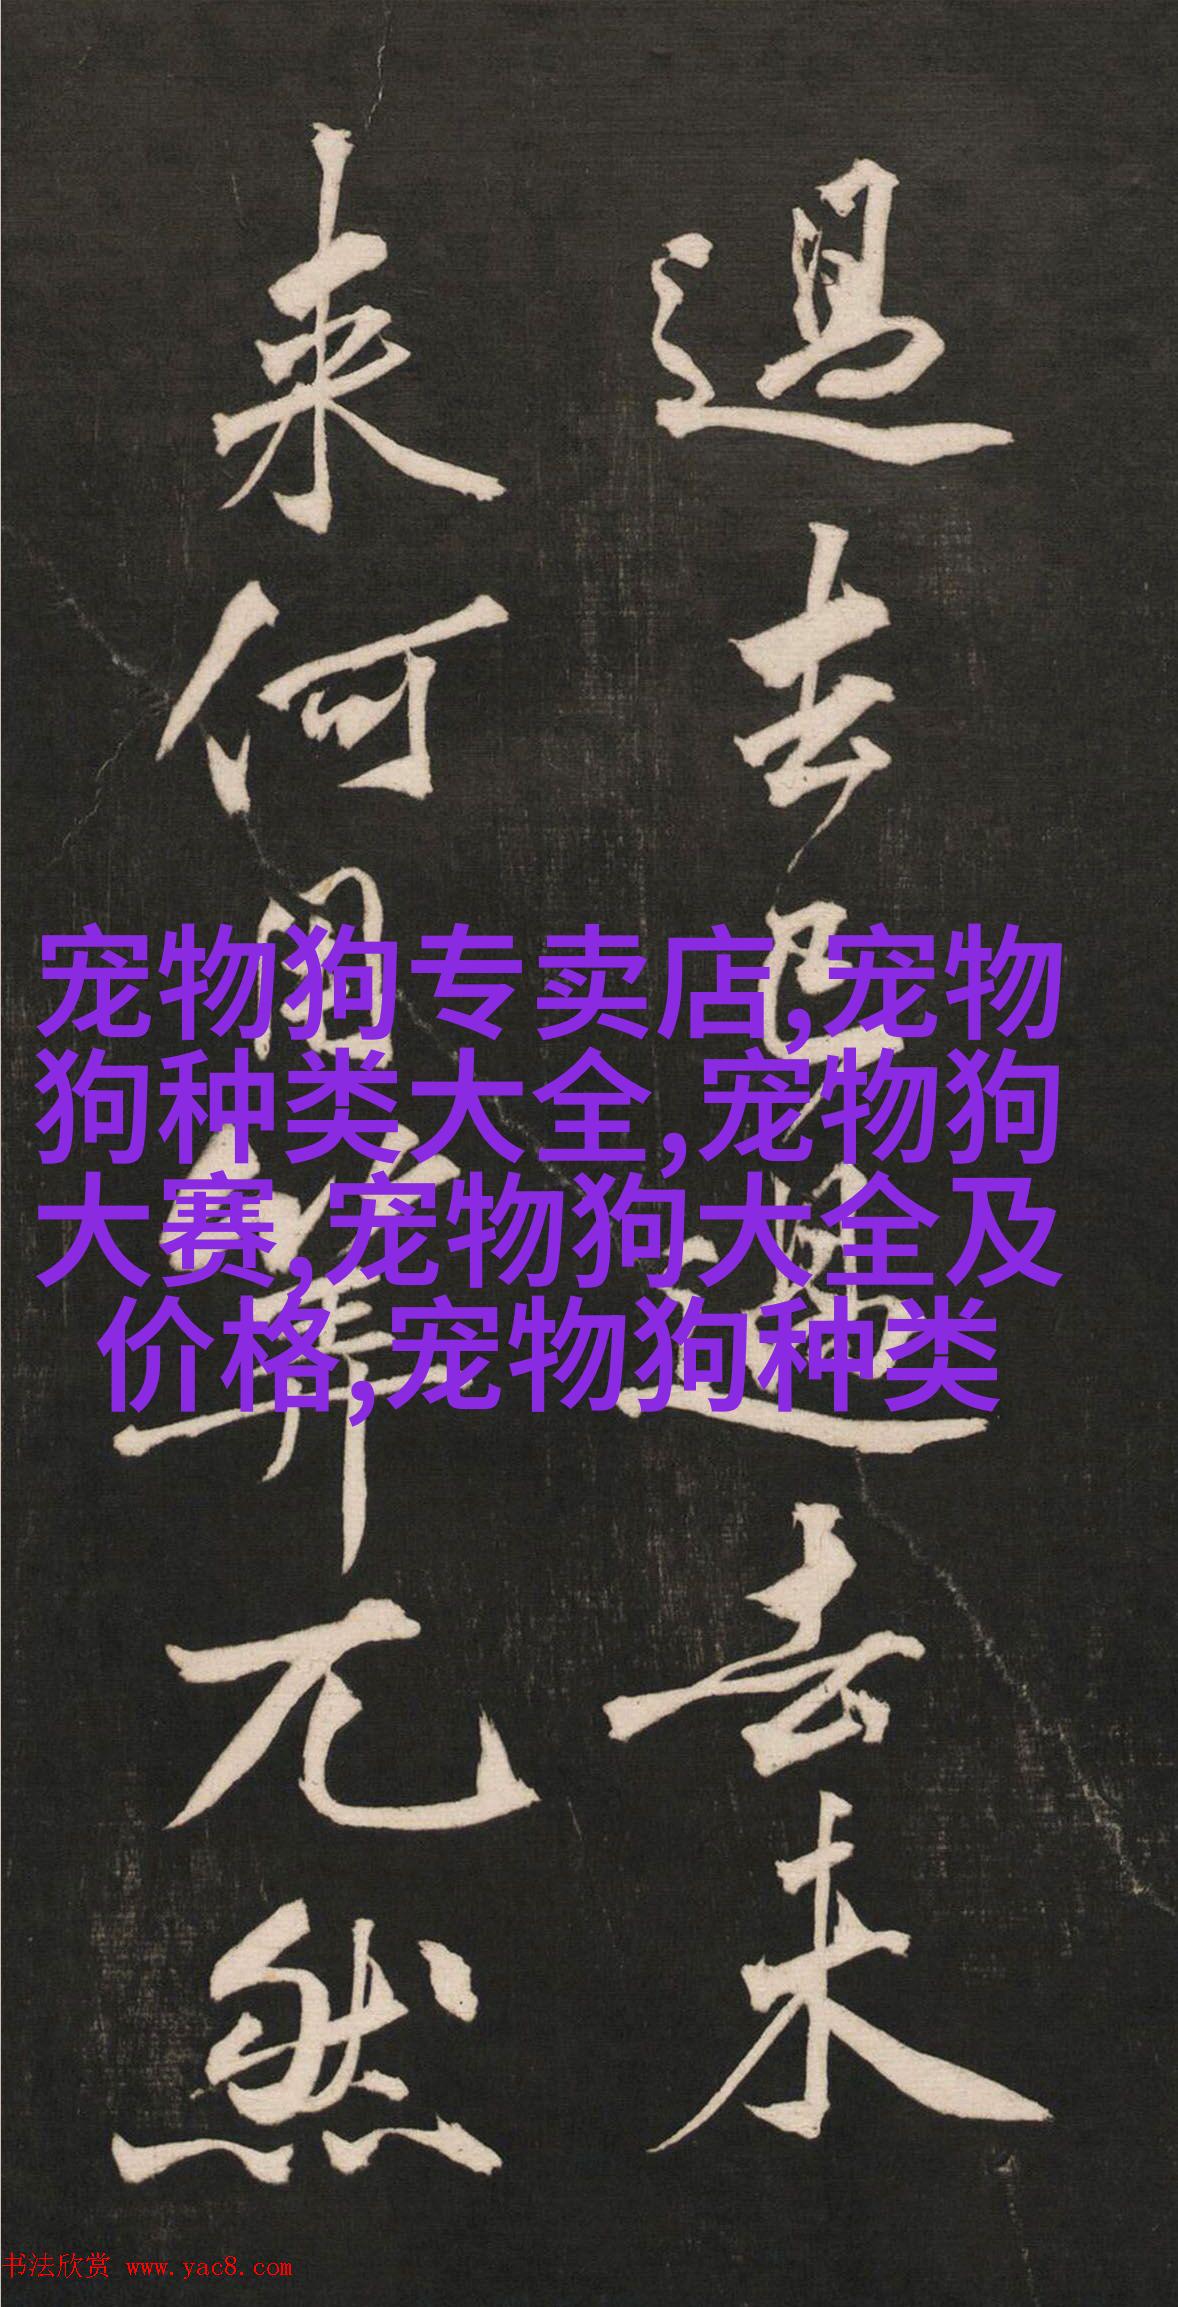 過去已過去未
来何用筭兀然
宠物狗专卖店,宠物
狗种类大全,宠物狗
大赛,宠物狗大全及
价格,宠物狗种类
书法欣赏 www.yac8.com